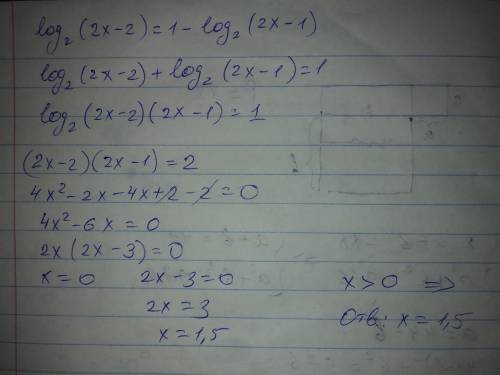 log₂(2x-2)=1-log₂(2x-1)
log₂(2x-2)+log₂(2x-1)=1
log₂(2x-2)(2x-1)=1
(2x-2)(2x-1)=2
4x²-2x-4x+2-2=0
4x²-6x=0
2x(2x-3)=0
x=0 2x-3=0 x>0 ⇒
2x=3 Отв: x=1,5
x=1,5